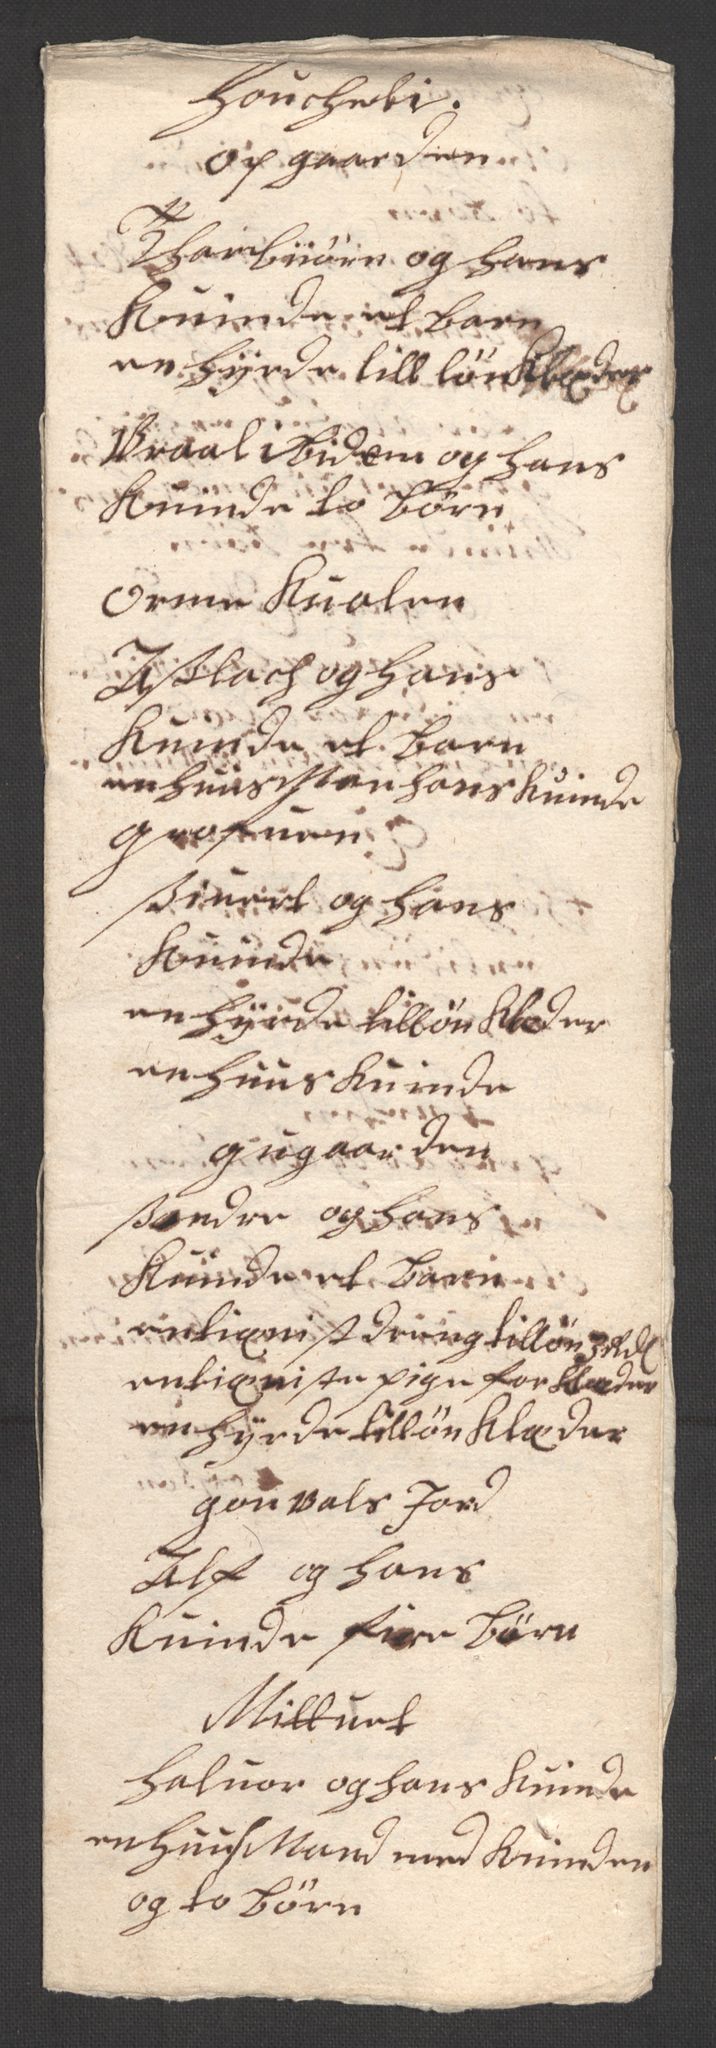 houchebi.
opgaarden
Tharbiiörn og hans
Kuinde et barn
en hyrde till lön Klæder
Wraal ibidem og hans
Kuinde to börn
Orme Kualen
Aslach og hans
Kuinde et barn
en huus Man hans Kuinde
grofuen
Siuert og hans
Kuinde
en hyrde till lön Klæder
en huus Kuinde
gugaarden
Sondre og hans
Kuinde et barn
en tienist dreng till lön
en tieniste pige for Klæder
en hyrde till lön Klæder
gonvals Jord
Alf og hans
Kuinde fire börn
Mittuet
haluor og hans Kuinde
en huus Mand med Kuinden
og to börn